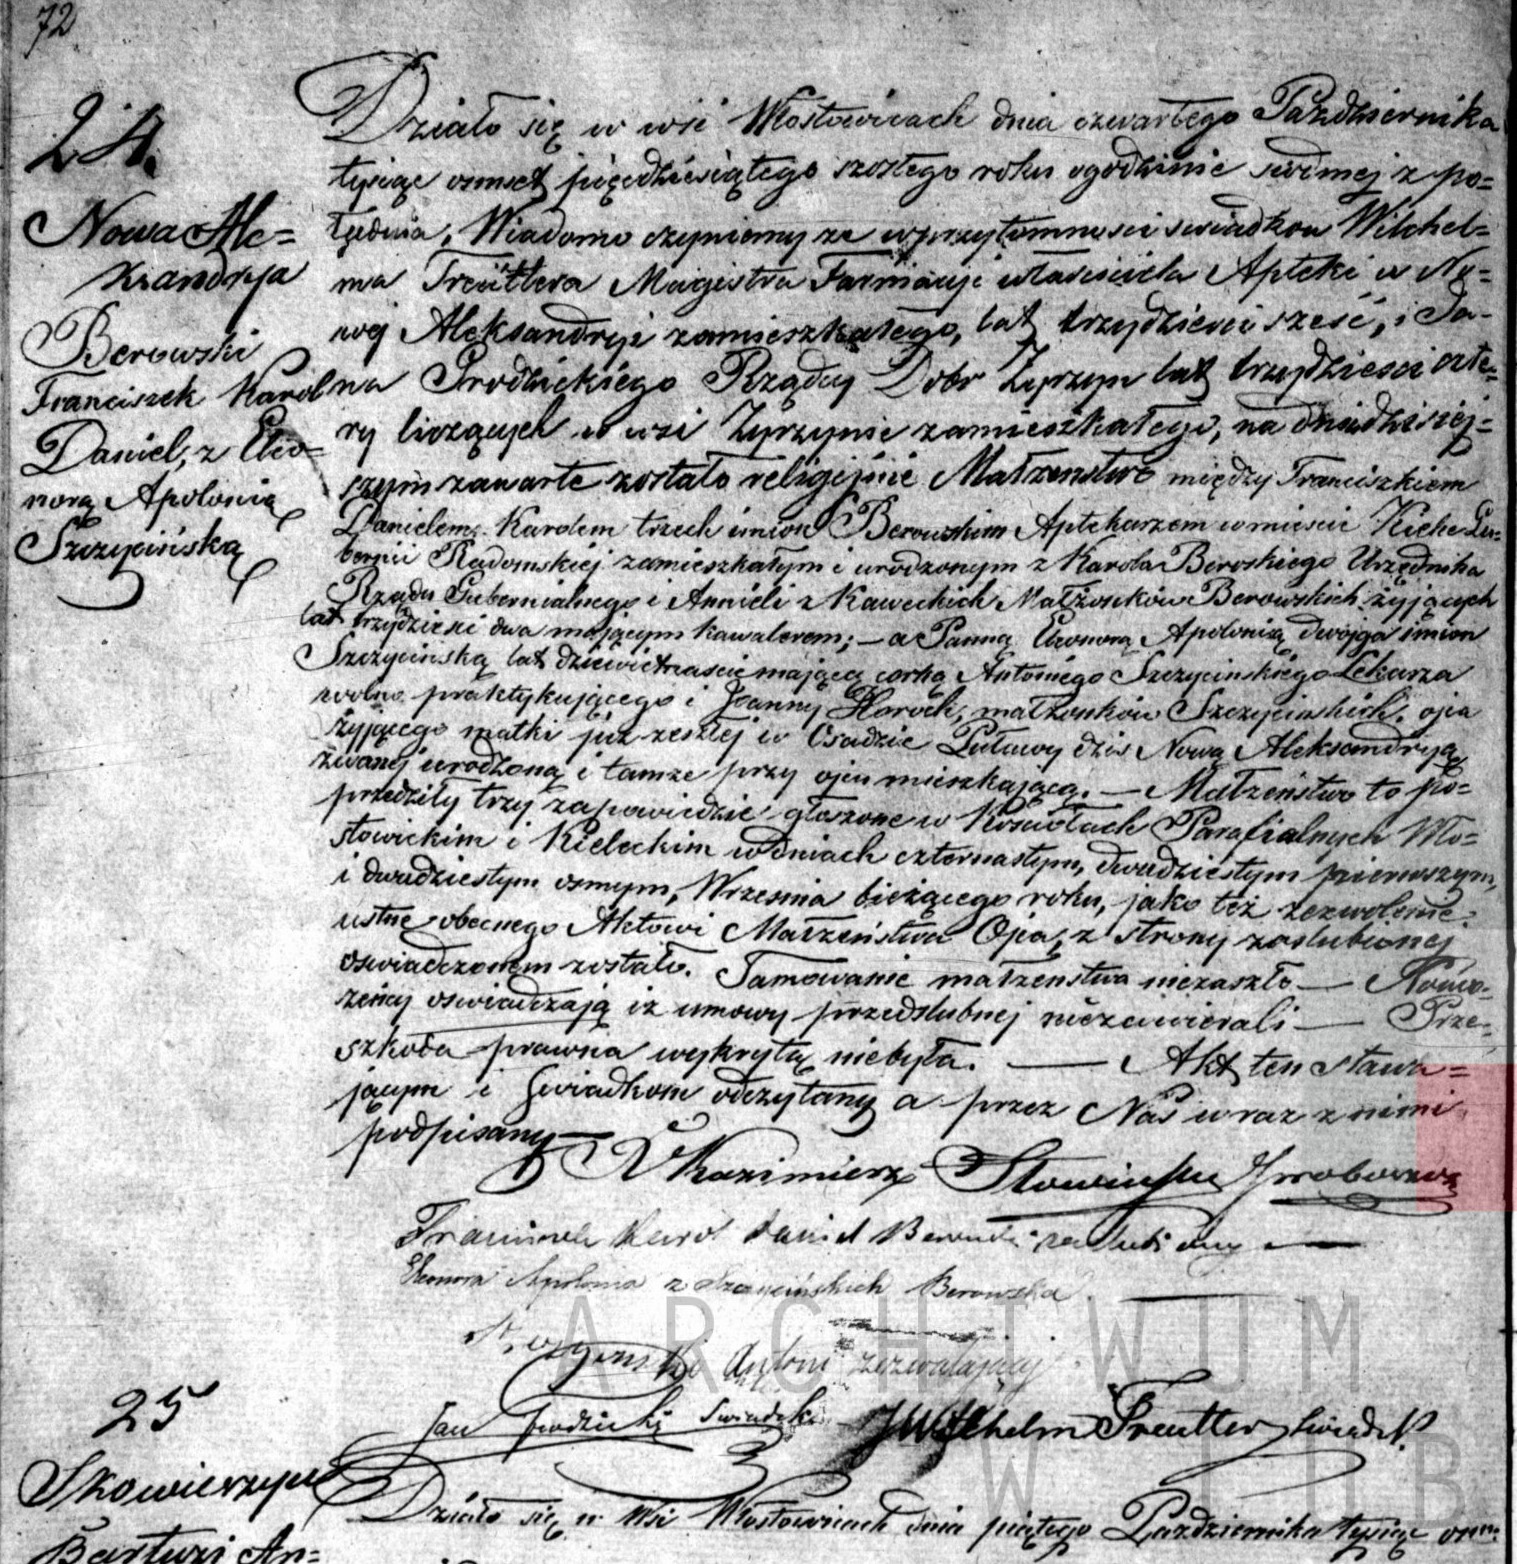 72
24.
Nowa Ale=
ksandryja
Berowski
Franciszek Karol
Daniel, z Eleo=
norą Apolonią
Szczycińską
Działo się w wsi Włostowicach dnia czwartego Października
tysiąc osmset pięcdziesiątego szostego roku ogodzinie siodmej z po=
łudnia, Wiadomo czyniemy ze wprzytomnosci swiadkow Wilhel=
ma Treutlera Magistra Farmacyi własciciela Apteki w No=
wej Aleksandryi zamieszkałego, lat trzydziesci szesć, i Ja-
na Grodzickiego Rządcy Dobr Żyrzyn lat trzydziesci czte=
ry liczących w wsi Żyrzynie zamieszkałego, na dniu dzisiej=
szym zawarte zostało religijnie Małzenstwo między Franciszkiem
Danielem Karolem trzech imion Berowskim Aptekarzem w miescie Kielce Gu=
bernii Radomskiej zamieszkałym i urodzonym z Karola Beroskiego Urzędnika
Rządu Gubernialnego i Annieli z Kaweckich Małżonków Berowskich żyjących
lat trzydziesci dwa mającym kawalerem; — a Panną Eleonorą Apolonią dwojga imion
Szczycińską lat dziewietnascie mającą corką Antoniego Szczycinskiego Lekarza
wolno praktykującego i Joanny Horoch, małzonków Szczycinskich, ojca
żyjącego matki już zeszłej w Osadzie Puławy dziś Nową Aleksandryą
zwanej urodzoną i tamze przy ojcu mieszkającą. — Małzeństwo to po=
przedziły trzy zapowiedzie głoszone w Kosciołach Parafialnych Wło=
stowickim i Kieleckim w dniach czternastym, dwudziestym pierwszym,
i dwudziestym osmym, Wrzesnia bieżącego roku, jako też zezwolenie
ustne obecnego Aktowi Małzeństwa Ojca, z strony zaslubionej
oswiadczonem zostało. Tamowanie małzenstwa niezaszło — Nowo-
żeńcy oswiadczają iz umowy przedslubnej niezawierali — Prze=
szkoda prawna wykrytą niebyła. — Akt ten stawa=
jącym i Swiadkom odczytany a przez Nas wraz z nimi
podpisany —
X Kazimierz Słowiński Proboszcz
Franciszek Karol Daniel Berowski zaslubiony —
Eleonora Apolonia z Szczycińskich Berowska. —
Szczycinski Antoni zezwalający
Jan Grodzicki Swiadek Wilhelm Treutler Swiadek
25
Skowieszyn
Bartuzi An=
Działo się w Wsi Włostowicach dnia piątego Października tysiąc osm
ARCHIWUM
W LUB